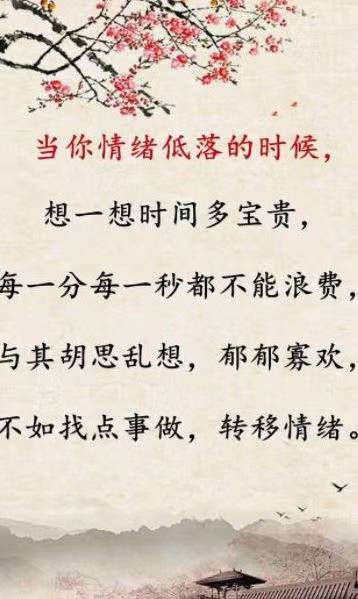 当你情绪低落的时候，
想一想时间多宝贵，
每一分每一秒都不能浪费，
与其胡思乱想，郁郁寡欢，
不如找点事做，转移情绪。